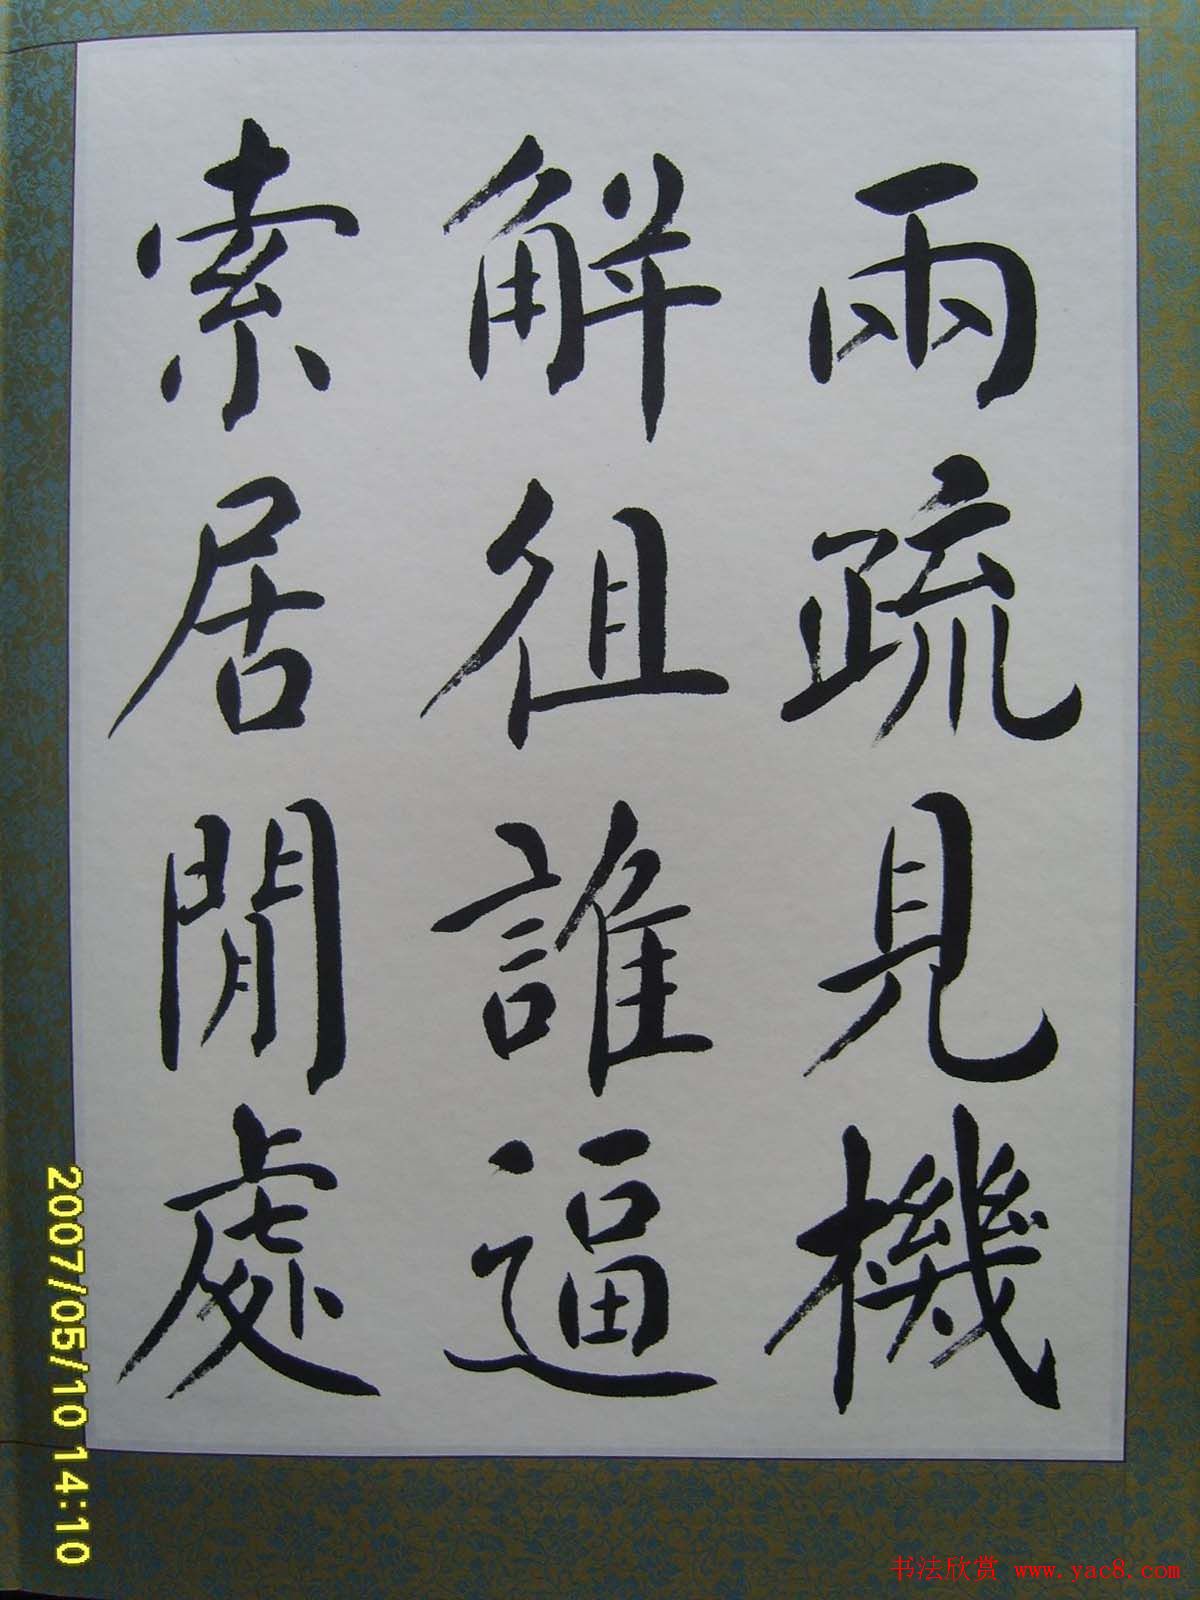 雨疏見機
解徂誰逼
索居閒處
2007/05/10 14:10
书法欣赏 www.yac8.com